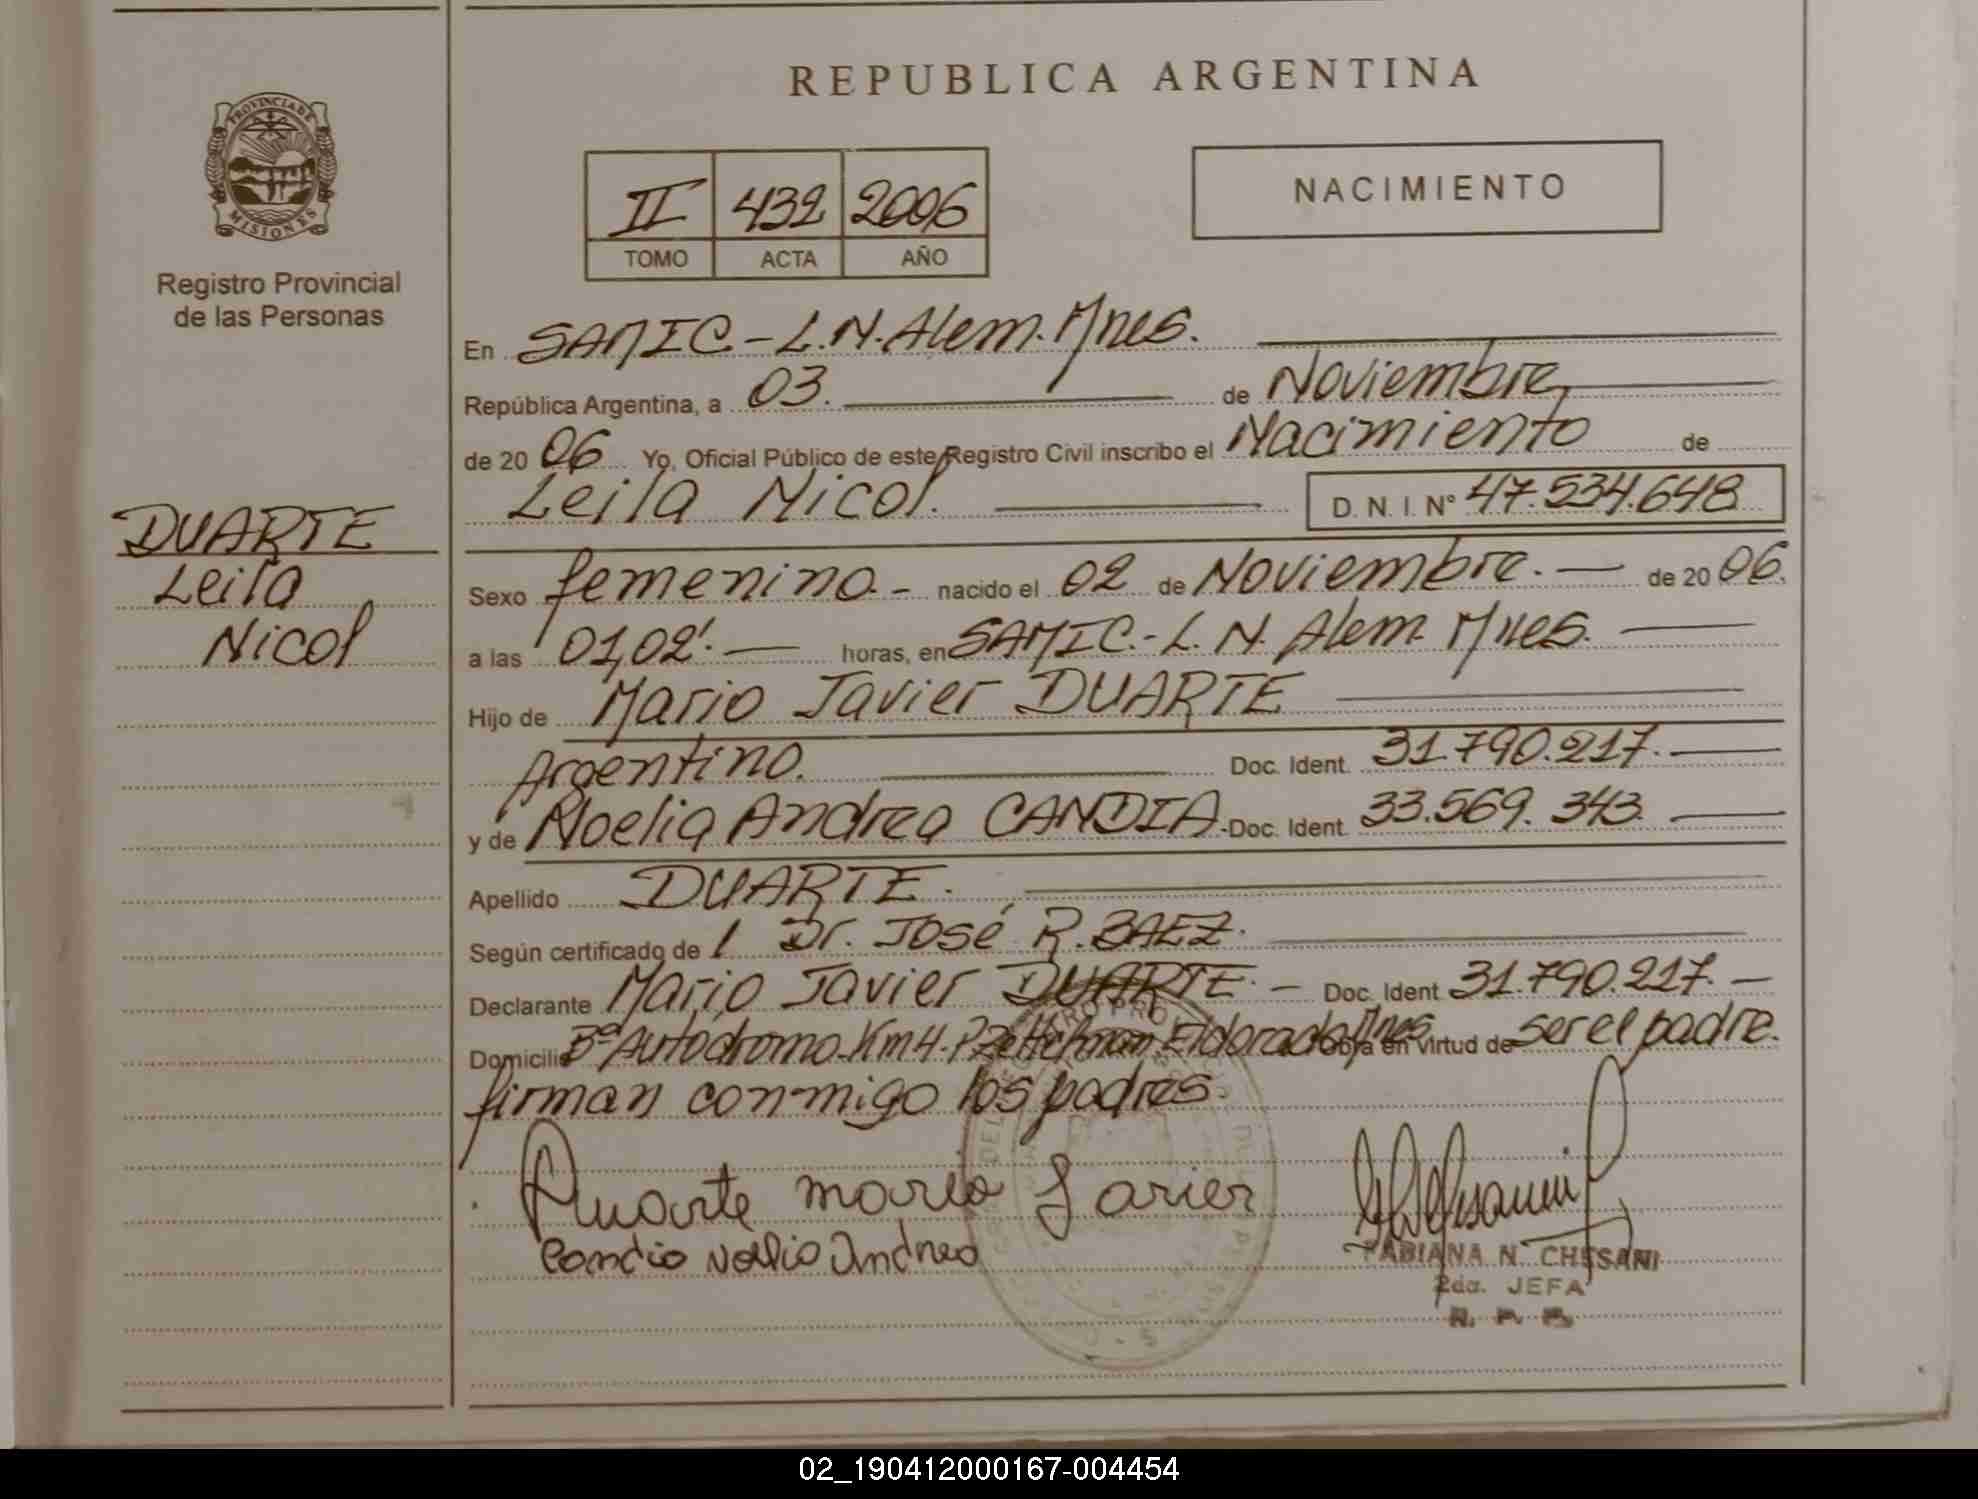 REPUBLICA ARGENTINA
PROVINCIA DE
MISIONES
Registro Provincial
de las Personas
II 432 2006
TOMO ACTA AÑO
NACIMIENTO
DUARTE
Leila
Nicol
En SAMIC - L.N. Alem. Mnes.
República Argentina, a 03. de Noviembre,
de 20 06 Yo, Oficial Público de este Registro Civil inscribo el Nacimiento de
Leila Nicol. D. N. I. N° 47.534.648
Sexo femenino.- nacido el 02 de Noviembre. - de 20 06.
a las 01,02'. - horas, en SAMIC.- L. N. Alem. Mnes.
Hijo de Mario Javier DUARTE
Argentino. Doc. Ident. 31.790.217.
y de Noelia Andrea CANDIA.- Doc. Ident. 33.569.343.
Apellido DUARTE.
Según certificado de / Dr. José R. BAEZ.
Declarante Mario Javier DUARTE. - Doc. Ident. 31.790.217. -
Domicilio B° Autódromo. Km 4. Eldorado Mnes obra en virtud de ser el padre.
firman conmigo los padres.
Duarte mario Javier
Candia Noelia Andrea
FABIANA N. CHESANI
2da. JEFA
R. P. P.
02_190412000167-004454